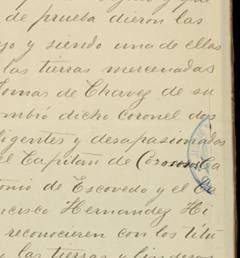 de prueba dieron las
yo y siendo una de ellas
las tierras mercenadas
Tomas de Chavez de su
ombró dicho Coronel dos
ligentes y desapasionados
el Capitan de
onio de Escovedo y el
ncisco Hernandez Hi
reconocieren con los titu
las tierras y linderos